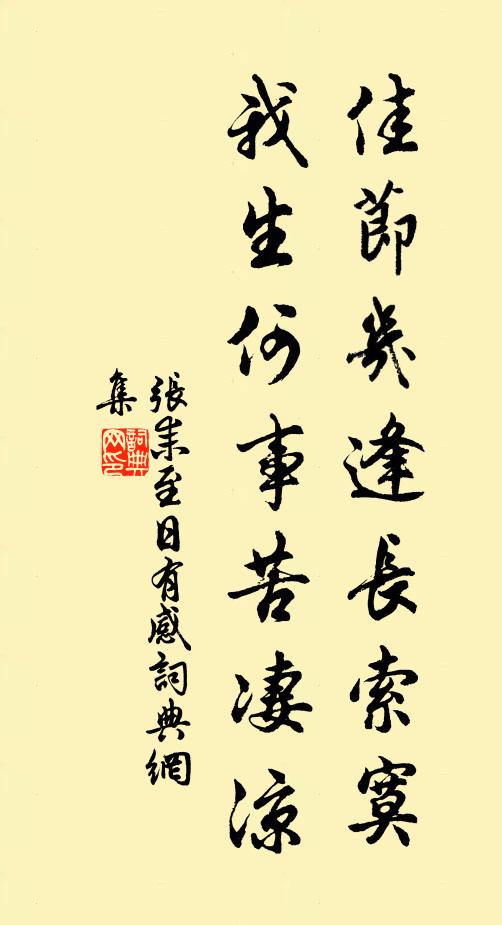 佳節幾逢長索寞
我生何事苦凄涼
張耒至日有感詞典網
集
詞典
网印